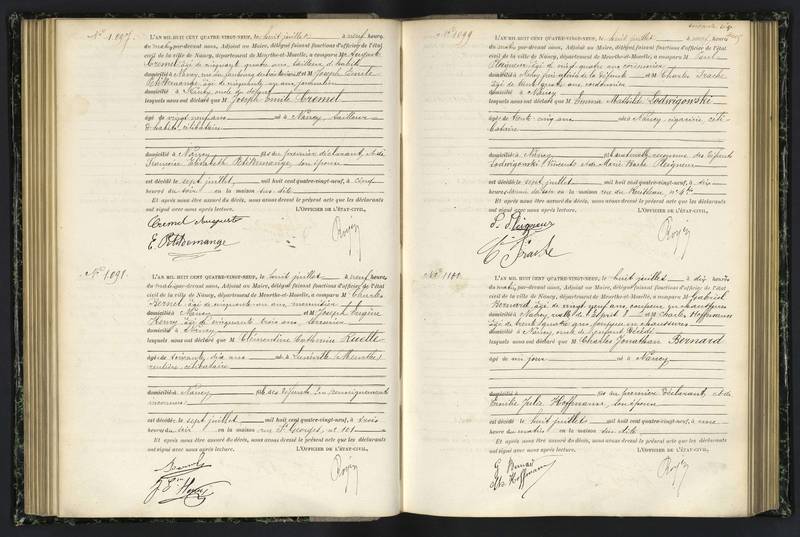 N° 1,097.
L'AN MIL HUIT CENT QUATRE-VINGT-NEUF, le huit juillet à neuf heures
du matin, par-devant nous, Adjoint au Maire, délégué faisant fonctions d'officier de l'état
civil de la ville de Nancy, département de Meurthe-et-Moselle, a comparu Mr Auguste
Cremel âgé de cinquante quatre ans, tailleur d'habits
domicilié à Nancy, et M Joseph Emile
Petitdemange, âgé de cinquante ans
domicilié à Nancy
lesquels nous ont déclaré que M Joseph Emile Cremel
âgé de vingt neuf ans né à Nancy, tailleur
d'habits, célibataire
domicilié à Nancy fils du premier déclarant, et de
Françoise Elisabeth Petitdemange, son épouse
est décédé le sept juillet mil huit cent quatre-vingt-neuf, à cinq
heures du soir en la maison sus dite
Et après nous être assuré du décès, nous avons dressé le présent acte que les déclarants
ont signé avec nous après lecture. L'OFFICIER DE L'ÉTAT-CIVIL,
Cremel Auguste
E. Petitdemange
N° 1,098.
L'AN MIL HUIT CENT QUATRE-VINGT-NEUF, le huit juillet à neuf heures
du matin, par-devant nous, Adjoint au Maire, délégué faisant fonctions d'officier de l'état
civil de la ville de Nancy, département de Meurthe-et-Moselle, a comparu M Charles
âgé de cinquante ans, menuisier
domicilié à Nancy et M Joseph
Henry âgé de cinquante trois ans
domicilié à Nancy
lesquels nous ont déclaré que M Clémentine Catherine Ruelle
âgée de soixante dix ans née à Lunéville (Meurthe)
rentière, célibataire
domiciliée à Nancy fille des défunts
inconnus
est décédée le sept juillet mil huit cent quatre-vingt-neuf, à trois
heures du soir en la maison rue St Georges, n° 101
Et après nous être assuré du décès, nous avons dressé le présent acte que les déclarants
ont signé avec nous après lecture. L'OFFICIER DE L'ÉTAT-CIVIL,
N° 1099
L'AN MIL HUIT CENT QUATRE-VINGT-NEUF, le huit juillet à neuf heures
du matin, par-devant nous, Adjoint au Maire, délégué faisant fonctions d'officier de l'état
civil de la ville de Nancy, département de Meurthe-et-Moselle, a comparu M Paul
Pleigneur âgé de vingt quatre ans cordonnier
domicilié à Nancy et M Charles Frache
âgé de trente quatre ans cordonnier
domicilié à Nancy
lesquels nous ont déclaré que M Emma Mathilde Lodwigowski
âgée de trente cinq ans née à Nancy, cigarière, céli-
bataire
domiciliée à Nancy fille naturelle, reconnue des défunts
Lodwigowski Vincent, et de Marie Pleigneur
est décédée le sept juillet mil huit cent quatre-vingt-neuf, à dix
heures du soir en la maison
Et après nous être assuré du décès, nous avons dressé le présent acte que les déclarants
ont signé avec nous après lecture. L'OFFICIER DE L'ÉTAT-CIVIL,
P. Pleigneur
C Frache
N° 1100
L'AN MIL HUIT CENT QUATRE-VINGT-NEUF, le huit juillet à dix heures
du matin, par-devant nous, Adjoint au Maire, délégué faisant fonctions d'officier de l'état
civil de la ville de Nancy, département de Meurthe-et-Moselle, a comparu M Gabriel
Bernard âgé de vingt neuf ans, coupeur en chaussures
domicilié à Nancy et M Charles Hoffmann
âgé de trente quatre ans, coupeur en chaussures
domicilié à Nancy
lesquels nous ont déclaré que M Charles Jonathan Bernard
âgé de un jour né à Nancy
domicilié à fils du premier déclarant, et de
Emilie Julie Hoffmann, son épouse
est décédé le huit juillet mil huit cent quatre-vingt-neuf, à une
heure du matin en la maison sus dite
Et après nous être assuré du décès, nous avons dressé le présent acte que les déclarants
ont signé avec nous après lecture. L'OFFICIER DE L'ÉTAT-CIVIL,
G Bernard
Ch. Hoffmann